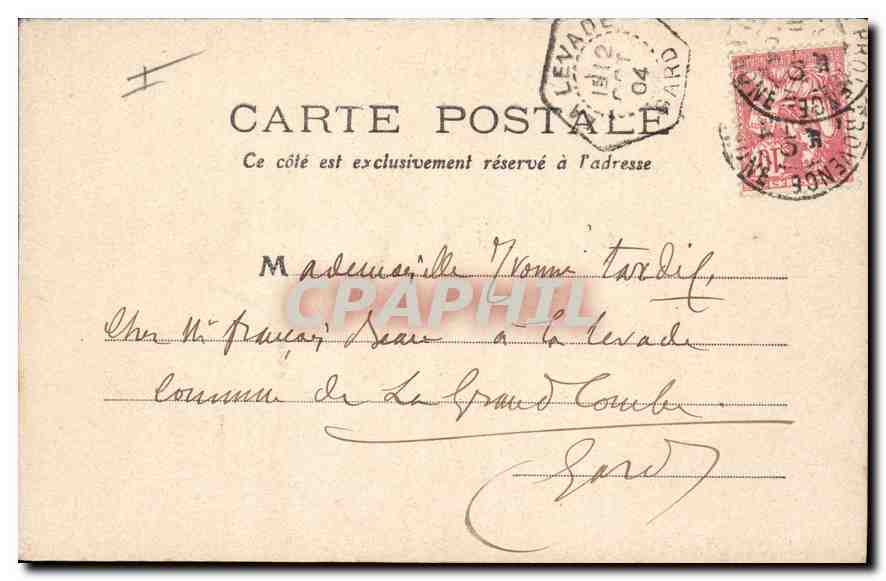 LA LEVADE
12
OCT
04
GARD
PROVENCE
CARTE POSTALE
Ce côté est exclusivement réservé à l'adresse
Mademoiselle Yvonne Tardif,
Chez Mr François à la Levade
Commune de La Grand Combe
Gard
CPAPHIL